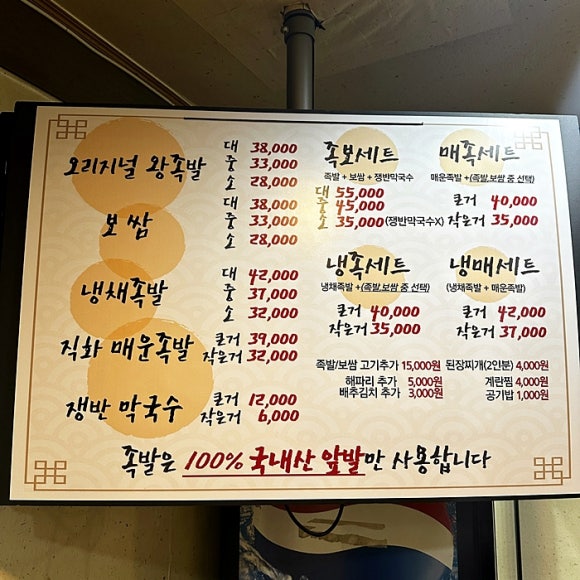 오리지널 왕족발
대 38,000
중 33,000
소 28,000
보쌈
대 38,000
중 33,000
소 28,000
냉채족발
대 42,000
중 37,000
소 32,000
직화 매운족발
큰거 39,000
작은거 32,000
쟁반 막국수
큰거 12,000
작은거 6,000
족보세트
족발 + 보쌈 + 쟁반막국수
대 55,000
중 45,000
소 35,000(쟁반막국수X)
매족세트
매운족발 +(족발,보쌈 중 선택)
큰거 40,000
작은거 35,000
냉족세트
냉채족발 +(족발,보쌈 중 선택)
큰거 40,000
작은거 35,000
냉매세트
(냉채족발 + 매운족발)
큰거 42,000
작은거 37,000
족발/보쌈 고기추가 15,000원
해파리 추가 5,000원
배추김치 추가 3,000원
된장찌개(2인분) 4,000원
계란찜 4,000원
공기밥 1,000원
족발은 100% 국내산 앞발만 사용합니다